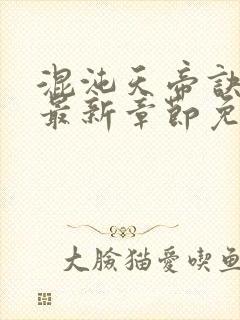 混沌天帝訣
最新章節免
大臉猫愛喫魚